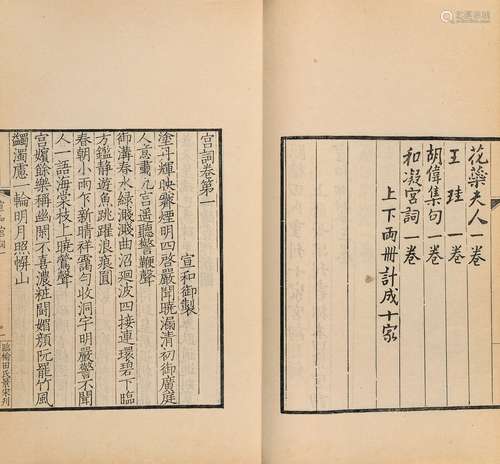 花蘂夫人一卷
王珪一卷
胡偉集句一卷
和凝宮詞一卷
上下兩冊計成十家
宮詞卷第一
宣和御製
塗丹輝映霽煙明四啓嚴聞曉漏清初御廣庭
人意肅九宮遥聽警鞭聲
御溝春水綠濺濺曲沼迴波四接連環碧下臨
方鑑靜遊魚跳躍浪痕圓
春朝小雨乍新晴祥靄勾收洞宇明嚴警不聞
人一語海棠枝上曉鶯聲
宮嬪餘樂稱幽閑不喜濃粧鬪媚顏阮罷竹風
蠲濁慮一輪明月照
山